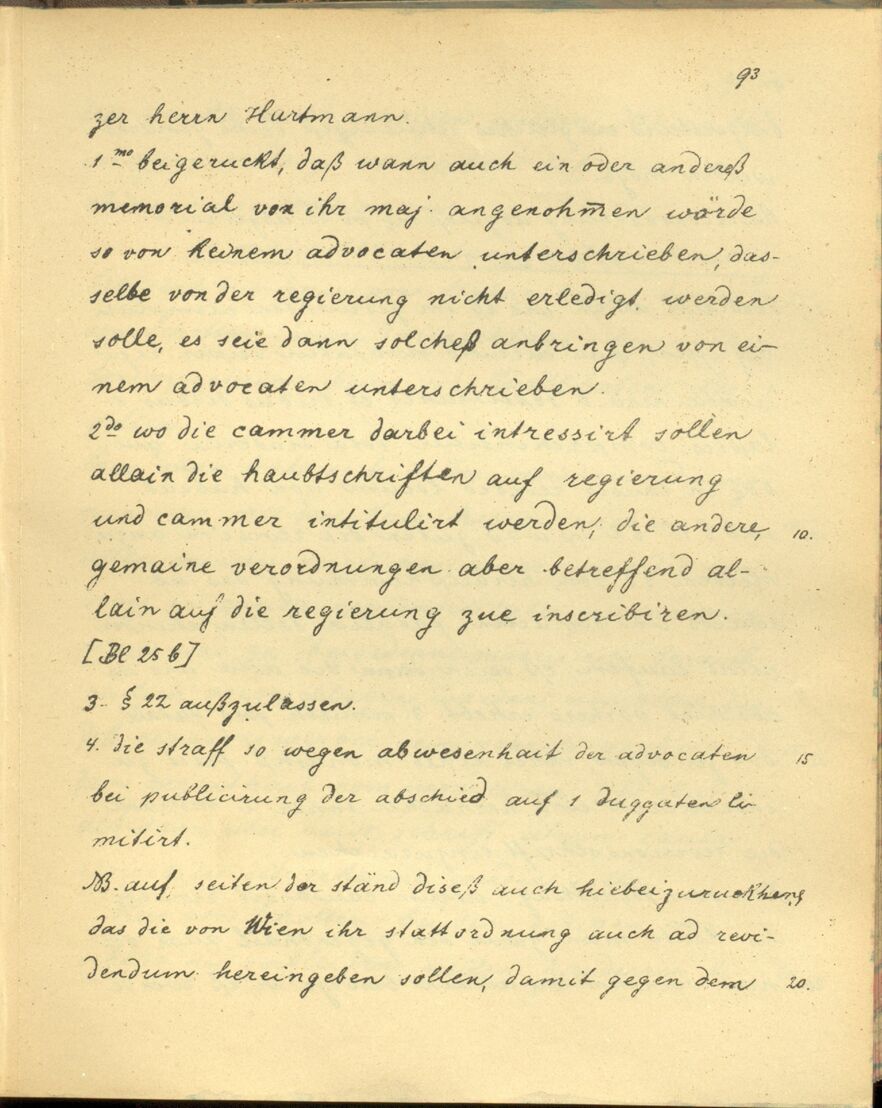 93
zer herrn Hartmann.
1mo beigeruckt, daß wann auch ein oder anderß
memorial von ihr maj. angenohmen wörde
so von keinem advocaten unterschrieben, das-
selbe von der regierung nicht erledigt werden
solle, es seie dann solcheß anbringen von ei-
nem advocaten unterschrieben.
2do wo die cammer darbei intressirt sollen
allain die haubtschriften auf regierung
und cammer intitulirt werden, die andere, 10.
gemaine verordnungen aber betreffend al-
lain auf die regierung zue inscribiren.
[Bl 25 b]
3. § 22 außzulassen.
4. die straff so wegen abwesenhait der advocaten 15
bei publicirung der abschied auf 1 duggaten li-
mitirt.
NB. auf seiten der ständ diseß auch hiebeizuruckhen,
das die von Wien ihr stattordnung auch ad revi-
dendum hereingeben sollen, damit gegen dem 20.